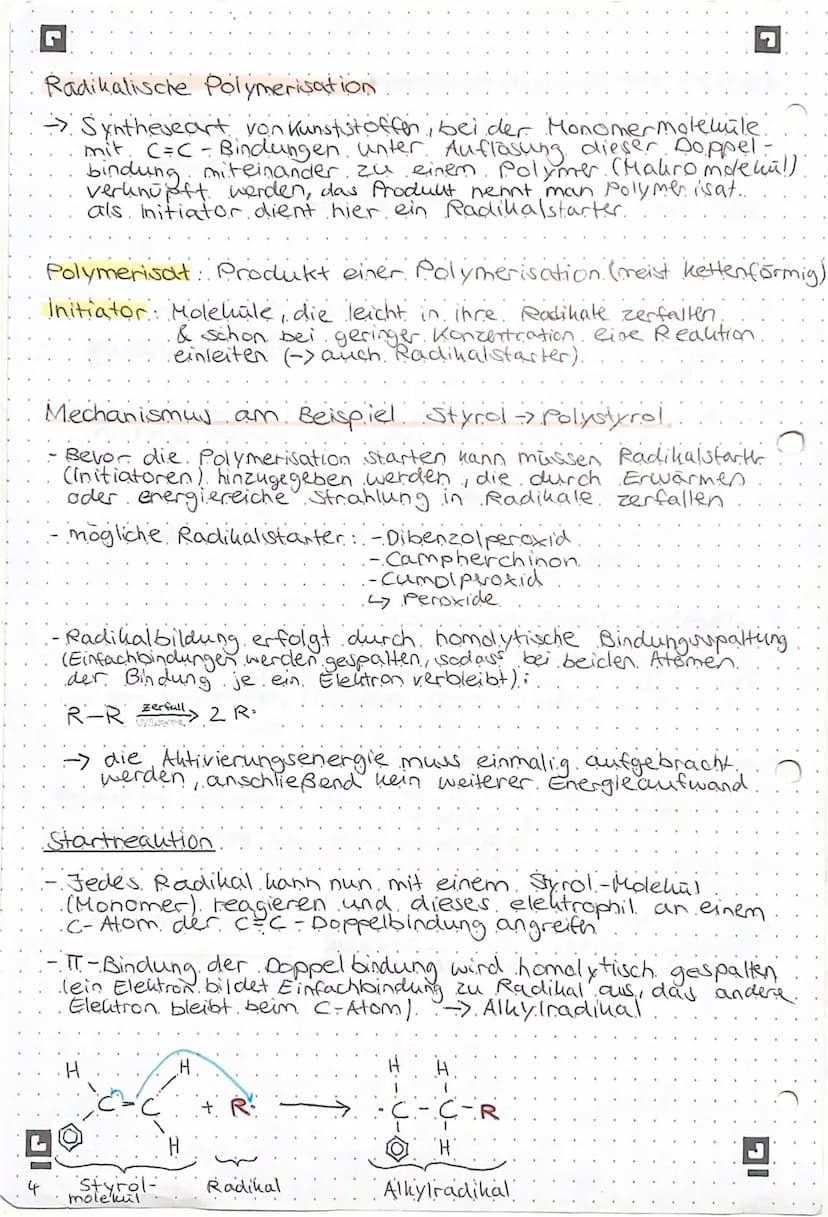 Radikalische Polymerisation
→ Syntheseart von Kunststoffen, bei der Monomermoleküle
mit C=C-Bindungen unter Auflösung dieser Doppel-
bindung miteinander zu einem Polymer (Makromolekül)
verknüpft werden, das Produkt nennt man Polymerisat.
als Initiator dient hier ein Radikalstarter.
Polymerisat: Produkt einer Polymerisation (meist kettenförmig)
Initiator: Moleküle, die leicht in ihre Radikale zerfallen
& schon bei geringer Konzentration eine Reaktion
einleiten (→ auch Radikalstarter).
Mechanismus am Beispiel Styrol → Polystyrol
- Bevor die Polymerisation starten kann müssen Radikalstarter
(Initiatoren) hinzugegeben werden, die durch Erwärmen
oder energiereiche Strahlung in Radikale zerfallen
- mögliche Radikalstarter: - Dibenzolperoxid
- Campherchinon
- Cumolproxid
↳ Peroxide
- Radikalbildung erfolgt durch homolytische Bindungsspaltung
(Einfachbindungen werden gespalten, sodass bei beiden Atomen
der Bindung je ein Elektron verbleibt):
R-R zerfall → 2 R·
→ die Aktivierungsenergie muss einmalig aufgebracht
werden, anschließend kein weiterer Energieaufwand
Startreaktion
- Jedes Radikal kann nun mit einem Styrol-Molekül
(Monomer) reagieren und dieses elektrophil an einem
C-Atom der C=C-Doppelbindung angreifen
- π-Bindung der Doppelbindung wird homolytisch gespalten
(ein Elektron bildet Einfachbindung zu Radikal aus, das andere
Elektron bleibt beim C-Atom). → Alkylradikal
H H H H
C=C + R· → ·C-C-R
H H
Styrol- Radikal Alkylradikal
molekül
4